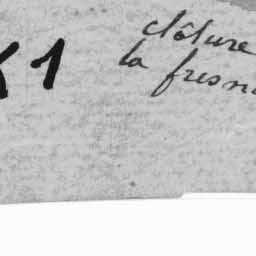 clôture
la fresn
1